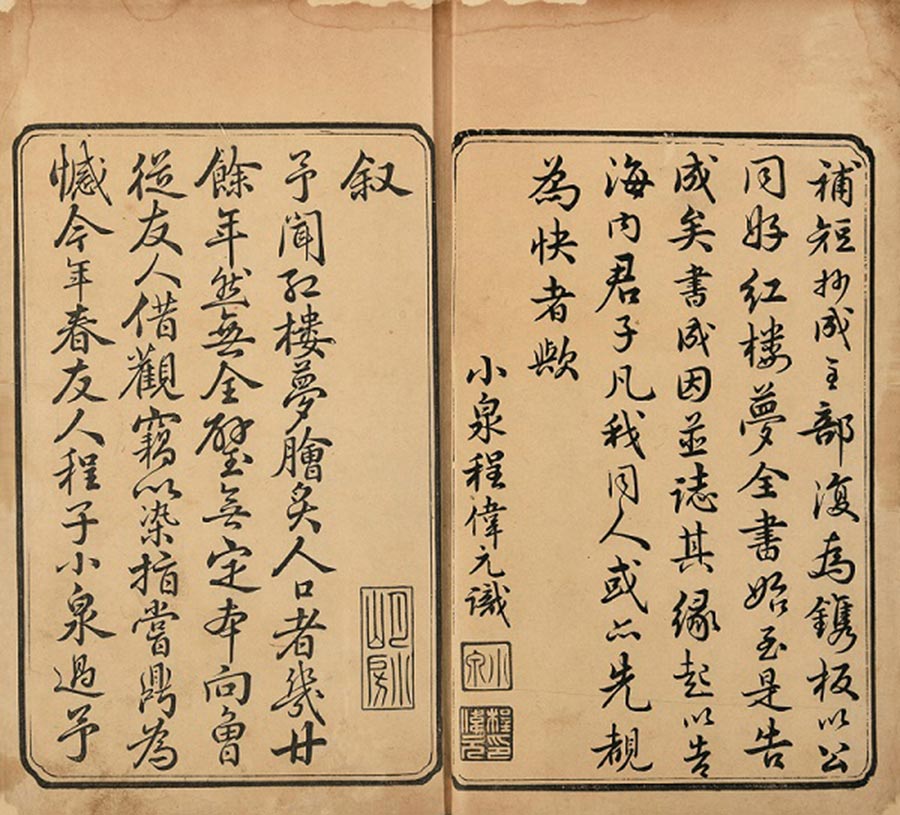 補短抄成全部復為鐫板以公
同好紅樓夢全書始至是告
成矣書成因並誌其緣起以告
海内君子凡我同人或亦先覩
為快者歟
小泉程偉元識
小泉
叙
予聞紅樓夢膾炙人口者幾廿
餘年然無全璧無定本向曾
從友人借觀竊以染指嘗鼎為
憾今年春友人程子小泉過予